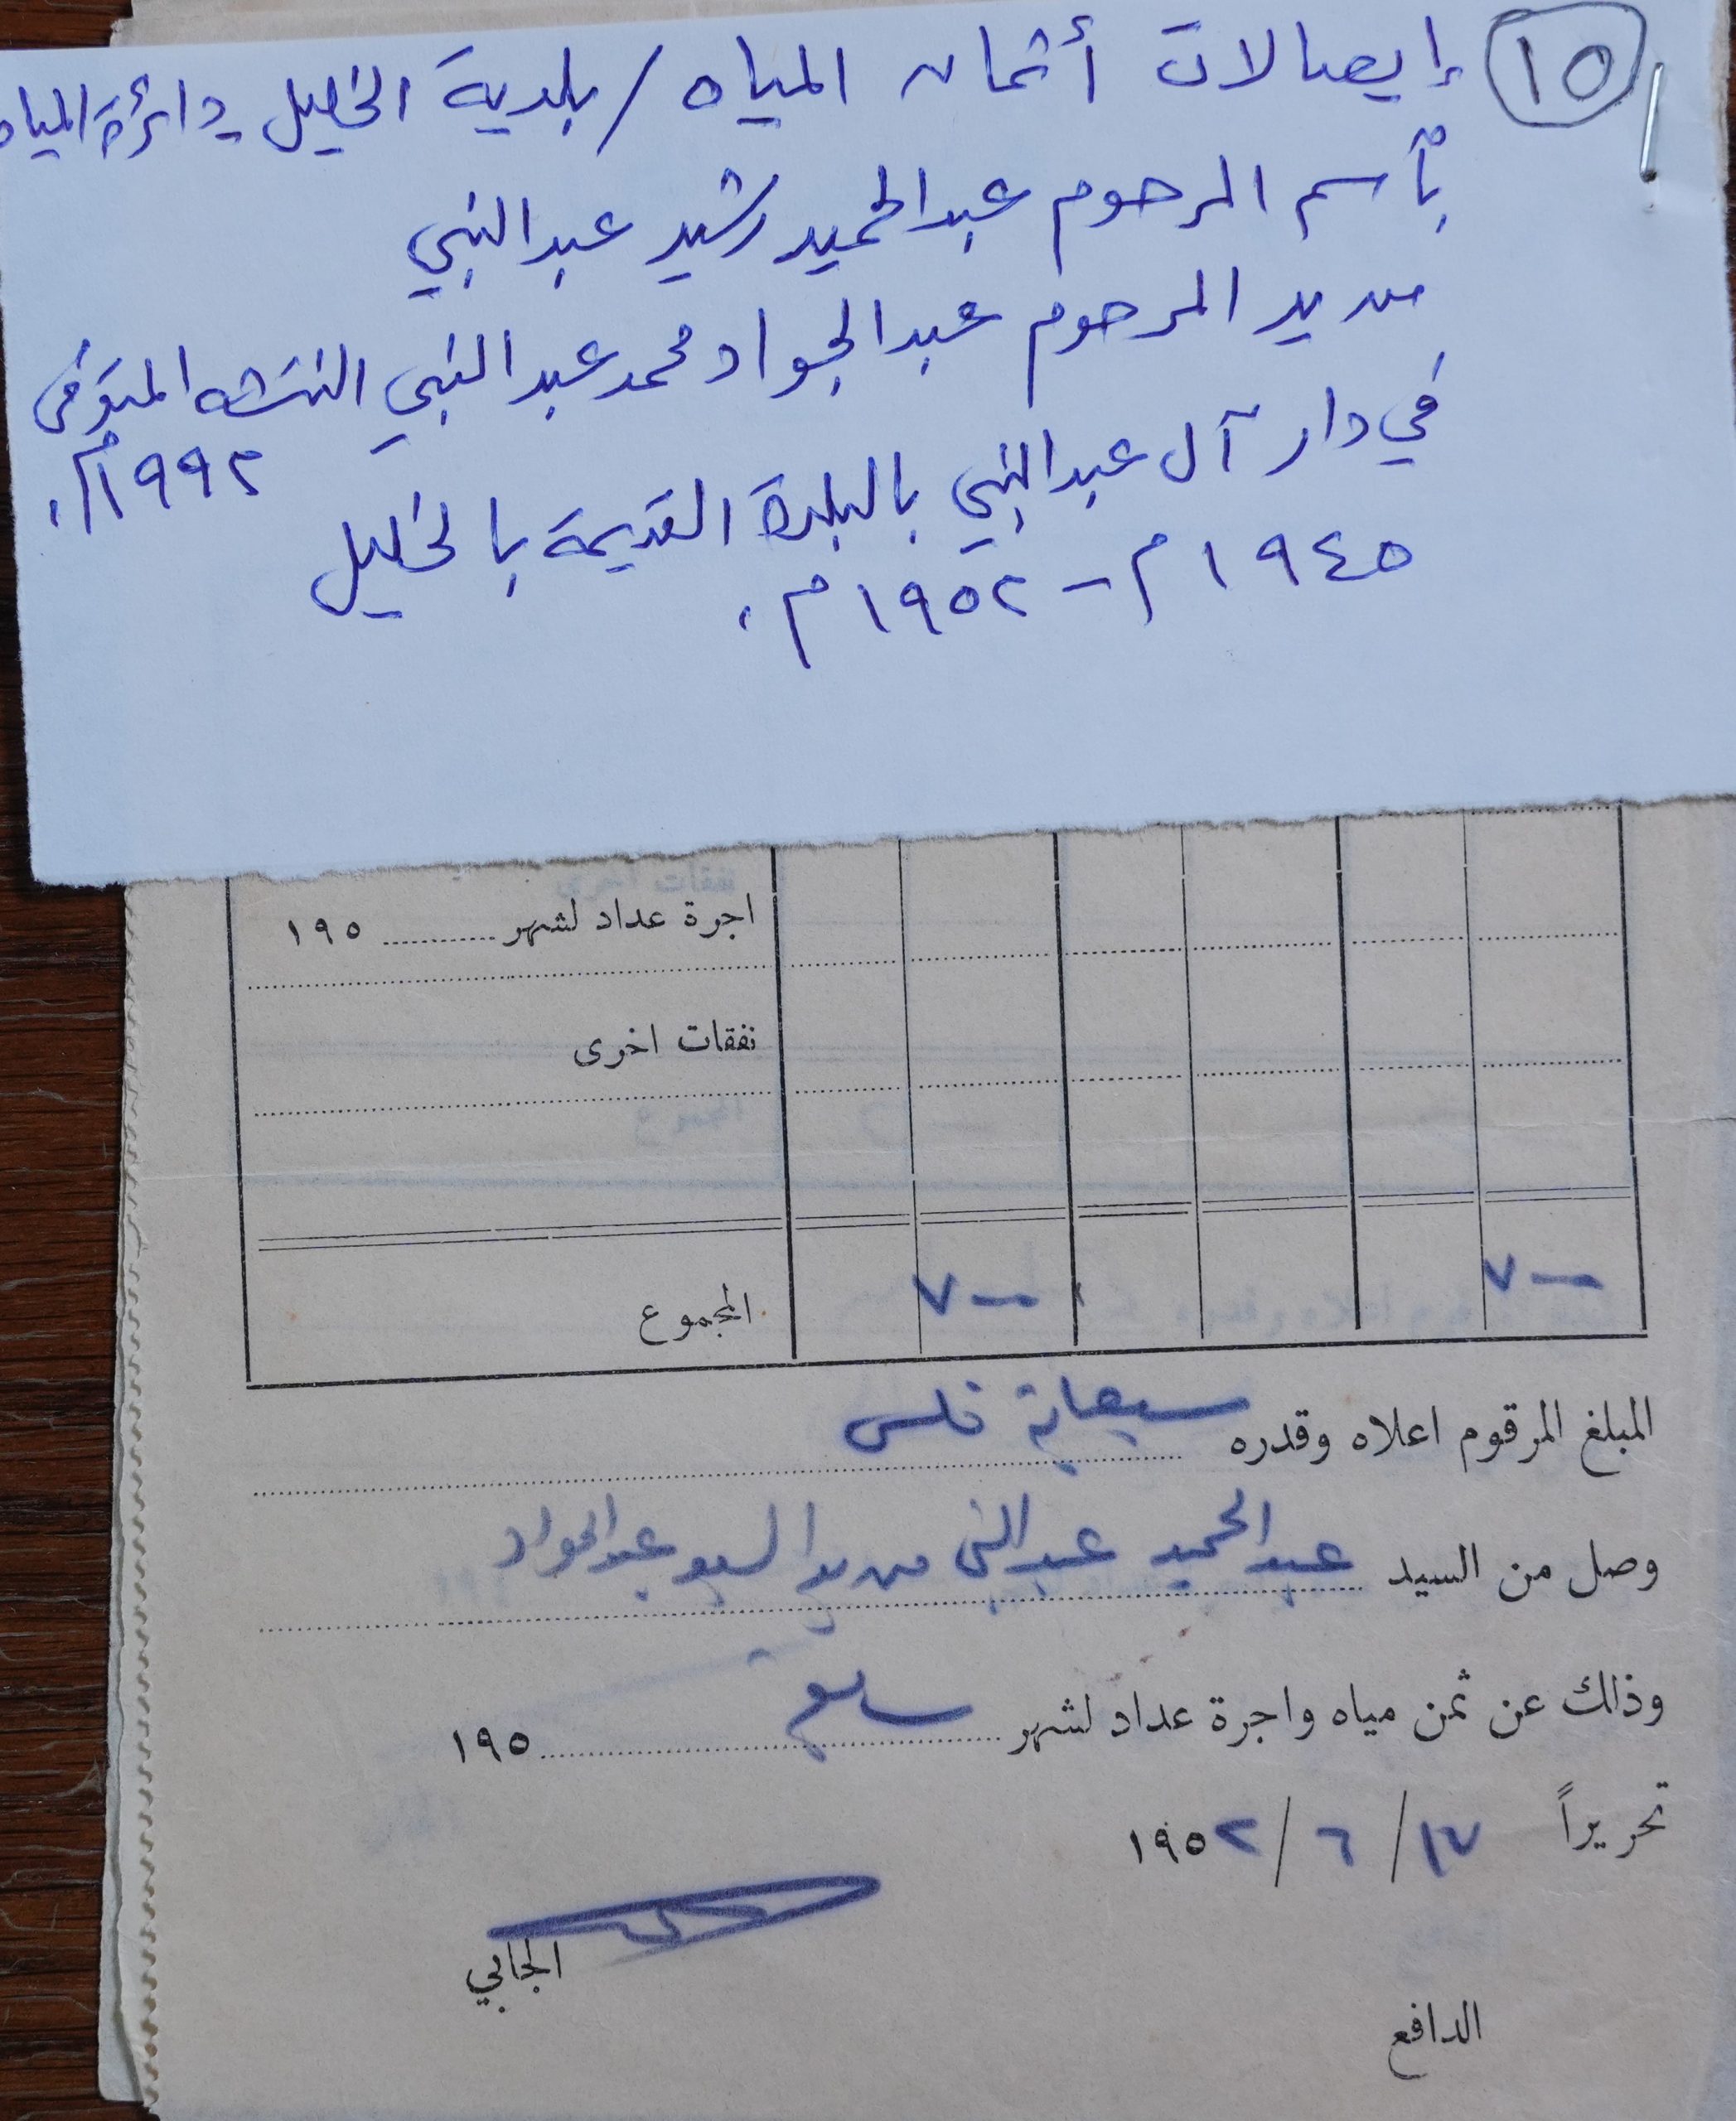 ١٥ إيصالات أثمان المياه / بلدية الخليل - دائرة المياه
بأسم المرحوم عبدالحميد رشيد عبدالنبي
من يد المرحوم عبدالجواد محمد عبدالنبي النتشه المتوفى ١٩٩٢م.
في دار آل عبدالنبي بالبلدة القديمة بالخليل
١٩٤٥م - ١٩٥٢م.
اجرة عداد لشهر ........... ١٩٥
نفقات اخرى
المجموع ٧٠٠ ٧٠٠
المبلغ المرقوم اعلاه وقدره سبعماية فلس
وصل من السيد عبدالحميد عبدالنبي من يد السيد عبدالجواد
وذلك عن ثمن مياه واجرة عداد لشهر ........... ١٩٥
تحريراً ١٧ / ٦ / ١٩٥٢
الجابي
الدافع